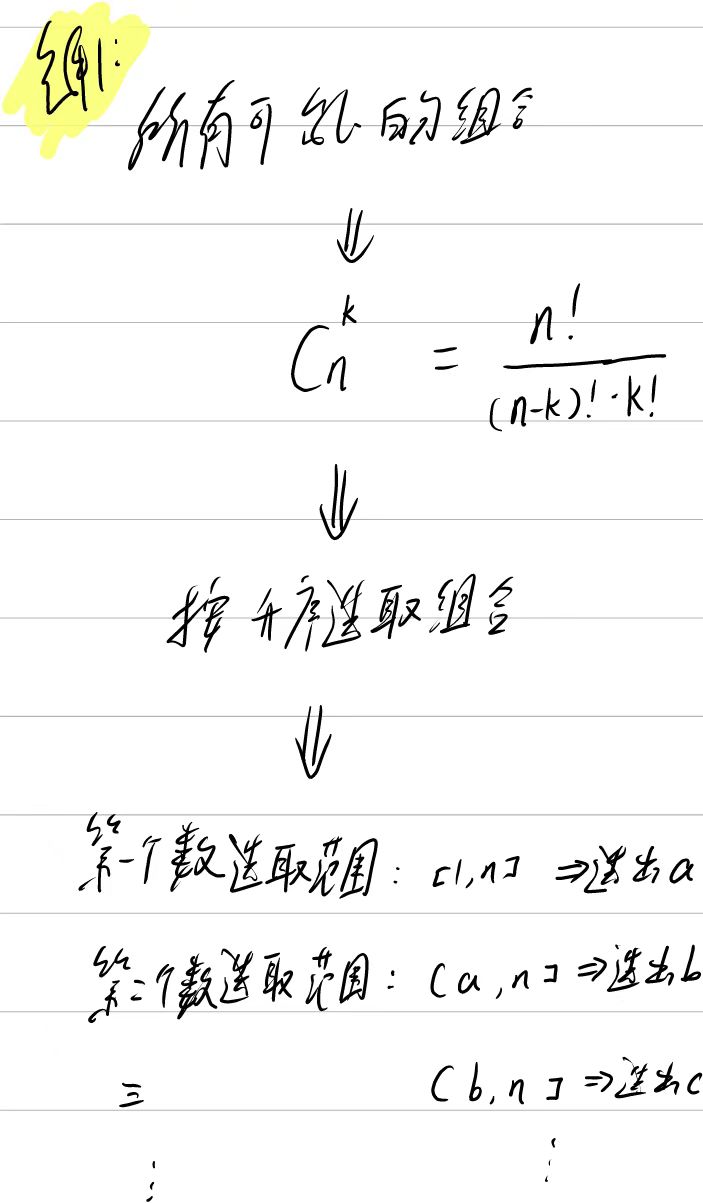 思路1:
所有可能的组合
⇓
C_n^k = n! / ((n-k)!·k!)
⇓
按升序选取组合
⇓
第一个数选取范围: [1,n] ⇒选出a
第二个数选取范围: (a,n] ⇒选出b
三 (b,n] ⇒选出c
⋮ ⋮